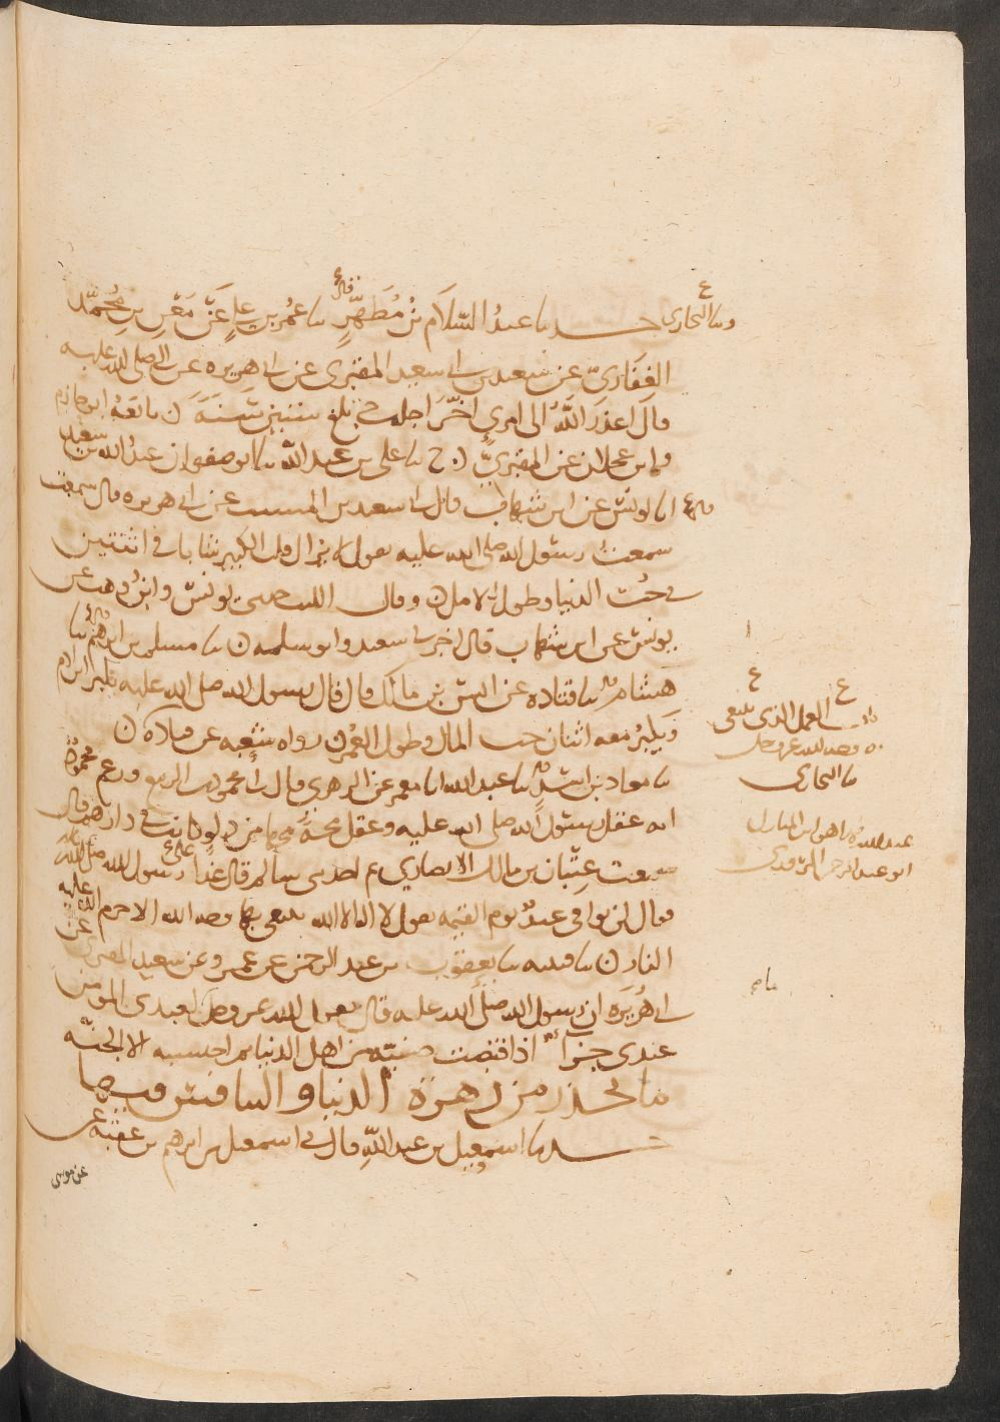 وسا البخاري حدسا عبد السلام بن مطهر سا عمر بن علي عن معن بن محمد
الغفاري عن سعيد بن ابي سعيد المقبري عن ابي هريره عن النبي صلى الله عليه
قال اعذر الله الى امرئ اخر اجله حتى بلغ ستين سنة تابعه ابو حازم
وابن عجلان عن المقبري ح سا علي بن عبد الله سا ابو صفوان عبد الله بن سعيد
انا يونس عن ابن شهاب قال اخبرني سعيد بن المسيب عن ابي هريره قال سمعت
سمعت رسول الله صلى الله عليه يقول لا يزال قلب الكبير شابا في اثنتين
في حب الدنيا وطول الامل وقال الليث حدثني يونس وابن وهب عن
يونس عن ابن شهاب قال اخبرني سعيد وابو سلمه سا مسلم بن ابرهيم سا
هشام سا قتاده عن انس بن مالك قال قال رسول الله صلى الله عليه يكبر ابن ادم
ويكبر معه اثنان حب المال وطول العمر رواه شعبه عن قتاده
سا معاد بن اسد سا عبد الله انا معمر عن الزهري قال اخبرني محمود بن الربيع وزعم محمود
انه عقل رسول الله صلى الله عليه وعقل مجة مجها من دلو كانت في دارهم قال
سمعت عتبان بن مالك الانصاري ثم احد بني سالم قال غدا علي رسول الله صلى الله عليه
فقال لن يوافي عبد يوم القيمه يقول لا اله الا الله يبتغي بها وجه الله الا حرم الله عليه
النار سا قتيبه سا يعقوب بن عبد الرحمن عن عمرو عن سعيد المقبري
عن ابي هريره ان رسول الله صلى الله عليه قال يقول الله عز وجل ما لعبدي المومن
عندي جزآء اذا قبضت صفيه من اهل الدنيا ثم احتسبه الا الجنه
ما يحذر من زهرة الدنيا والتنافس فيها
حدسا اسمعيل بن عبد الله قال حدثني اسمعيل بن ابرهيم بن عقبه عن
عن موسى
باب العمل الذي يبتغي
به وجه الله عز وجل
سا البخاري
عبد الله هو ابن المبارك
ابو عبد الرحمن المروزي